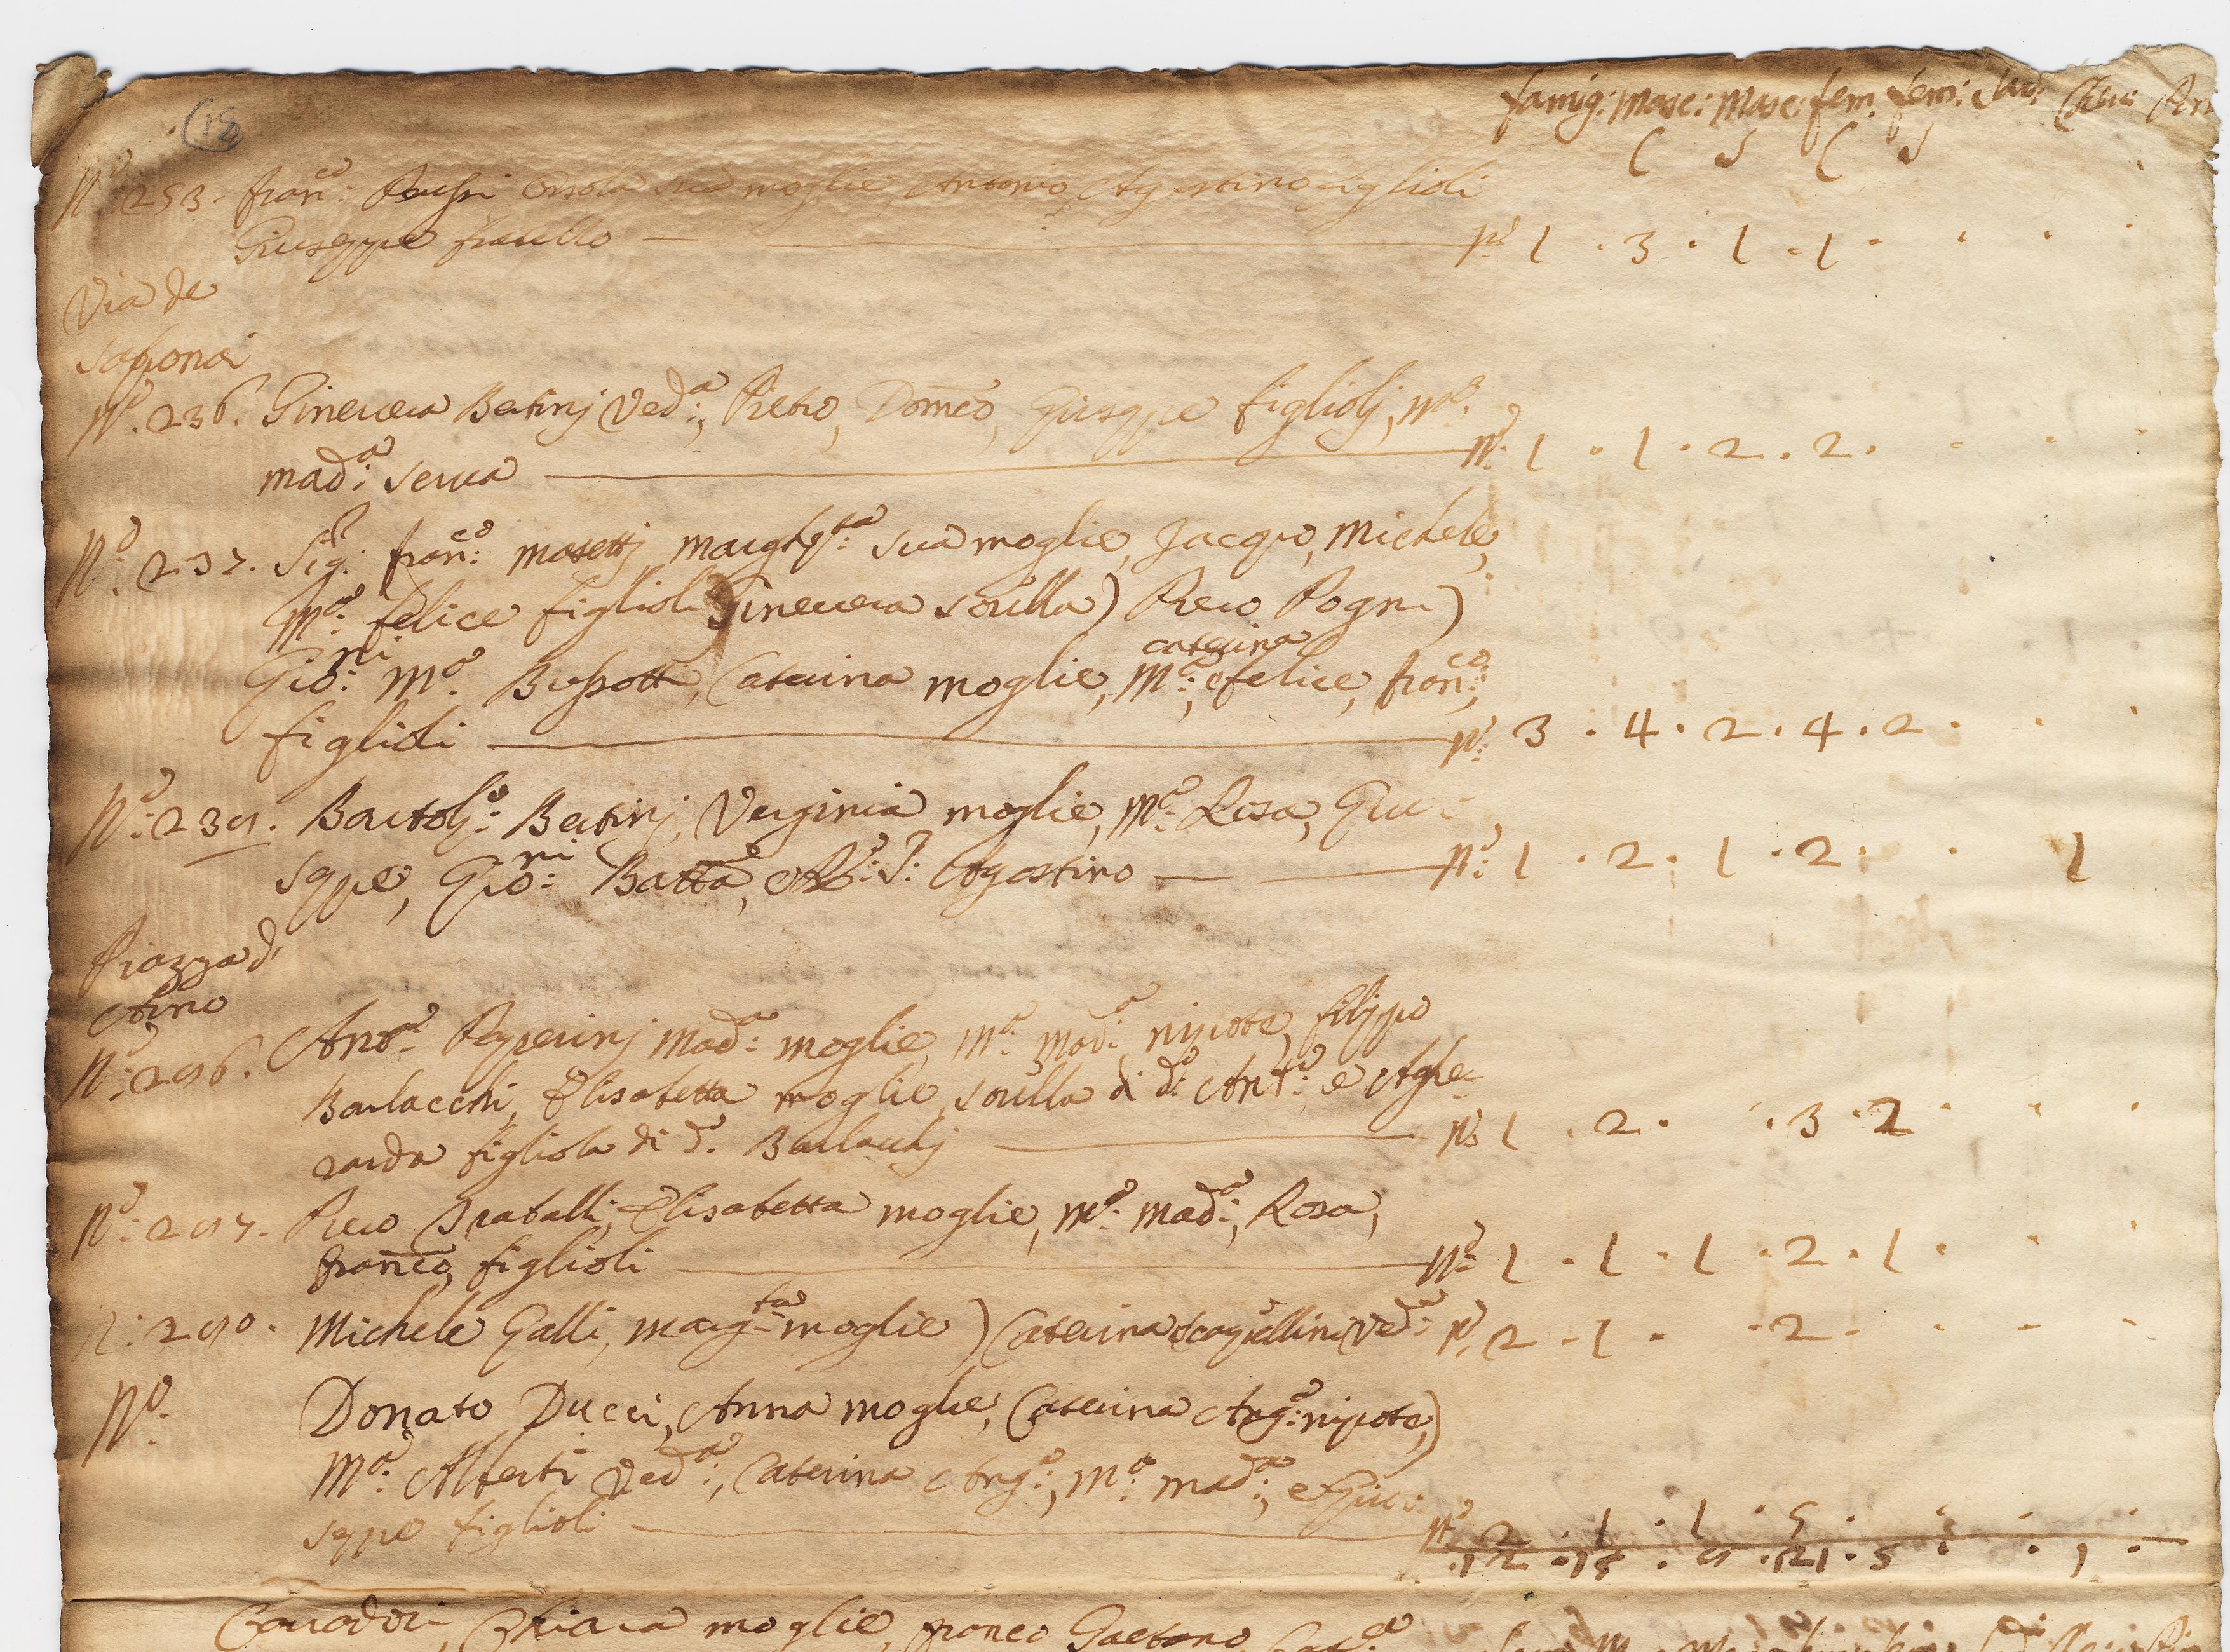 famig: Masc: Masc: fem. fem:
(18
C S C S
Nº 253. Franco: sua moglie, Antonio, Agostino figlioli
Giuseppe fratello — nº 1 · 3 · 1 · 1 ·
Via de
Saponai
Nº. 236. Ginevera Bertinj Veda:, Pietro, Domco, Giuseppe figliolj, Ma.
mada: serva — nº: 1 · 1 · 2 · 2 ·
Nº: 237. Sigr: Franco: Masettj, Marghta: sua moglie, Jacopo, Michele,
Ma: felice figlioli Ginevera sorella) Piero Pogni)
caterina
Gioni: Ma. Bussotti, Caterina moglie, Ma:, e felice, Franco:,
figlioli — nº: 3 · 4 · 2 · 4 · 2 ·
Nº: 239. Bartolo: Bertinj, Verginia moglie, Ma: Rosa, Giu
seppe, Gioni: Batta, Agostino — nº: 1 · 2 · 1 · 2 · 1
Piazza d'
Arno
Nº: 296. Anto: Peperinj Mada: moglie, Ma: Mada: nipote, filippo
Barlacchi, Elisabetta moglie, sorella di do: Anto:, e Ghe=
rarda figliola di do. Barlacchj — nº 1 · 2 · · 3 · 2
Nº: 297. Piero Bratalli, Elisabetta moglie, Ma: Mada:, Rosa,
franco, figlioli — nº: 1 · 1 · 1 · 2 · 1 ·
Nº: 290. Michele Galli, Margta: moglie) Caterina Veda: nº. 2 · 1 · · 2 ·
Nº. Donato Ducci, Anna moglie, Caterina Anga: nipote,)
Ma: Alberti Veda:, Caterina Anga:, Ma: Mada:, e Giu
seppe figlioli — nº 2 · 1 · 1 · 5 ·
12 · 15 · 9 · 21 · 5 · · 1 ·
Corradori, Chiara moglie, Franco Gaetano